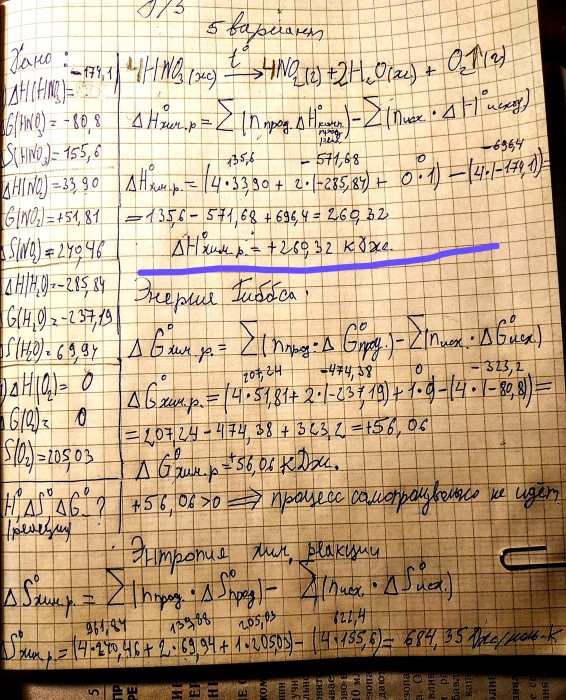 5 вариант
Дано:
ΔH(HNO₃)= -174,1
G(HNO₃)= -80,8
S(HNO₃)=155,6
ΔH(NO₂)=33,90
G(NO₂)=+51,81
S(NO₂)=240,46
ΔH(H₂O)=-285,84
G(H₂O)=-237,19
S(H₂O)=69,94
ΔH(O₂)= 0
ΔG(O₂)= 0
S(O₂)=205,03
H° ΔS° ΔG-?
(реакции)
4HNO₃(ж) t° → 4NO₂(г)+2H₂O(ж) + O₂↑(г)
ΔH°хим.р = ∑(nпрод. ΔH°комп. прод. реак) - ∑(nисх. · ΔH°исход)
135,6 -571,68 0 -696,4
ΔH°хим.р. = (4·33,90 + 2·(-285,84) + 0·1) - (4·(-174,1))=
=135,6 - 571,68 + 696,4 = 260,32
ΔH°хим.р. = +260,32 кДж.
Энергия Гиббса.
ΔG°хим.р. = ∑(nпрод. · ΔG°прод.) - ∑(nисх. · ΔG°исх.)
207,24 -474,38 0 -323,2
ΔG°хим.р. = (4·51,81 + 2·(-237,19) + 1·0) - (4·(-80,8)) =
= 207,24 - 474,38 + 323,2 = +56,06
ΔG°хим.р = +56,06 кДж.
+56,06>0 ⟹ процесс самопроизвольно не идёт
Энтропия хим. реакции
ΔS°хим.р. = ∑(nпрод. · ΔS°прод) - ∑(nисх. · ΔS°исх.)
961,84 139,88 205,03 622,4
S°хим.р. = (4·240,46 + 2·69,94 + 1·205,03) - (4·155,6) = 684,35 Дж/моль·К